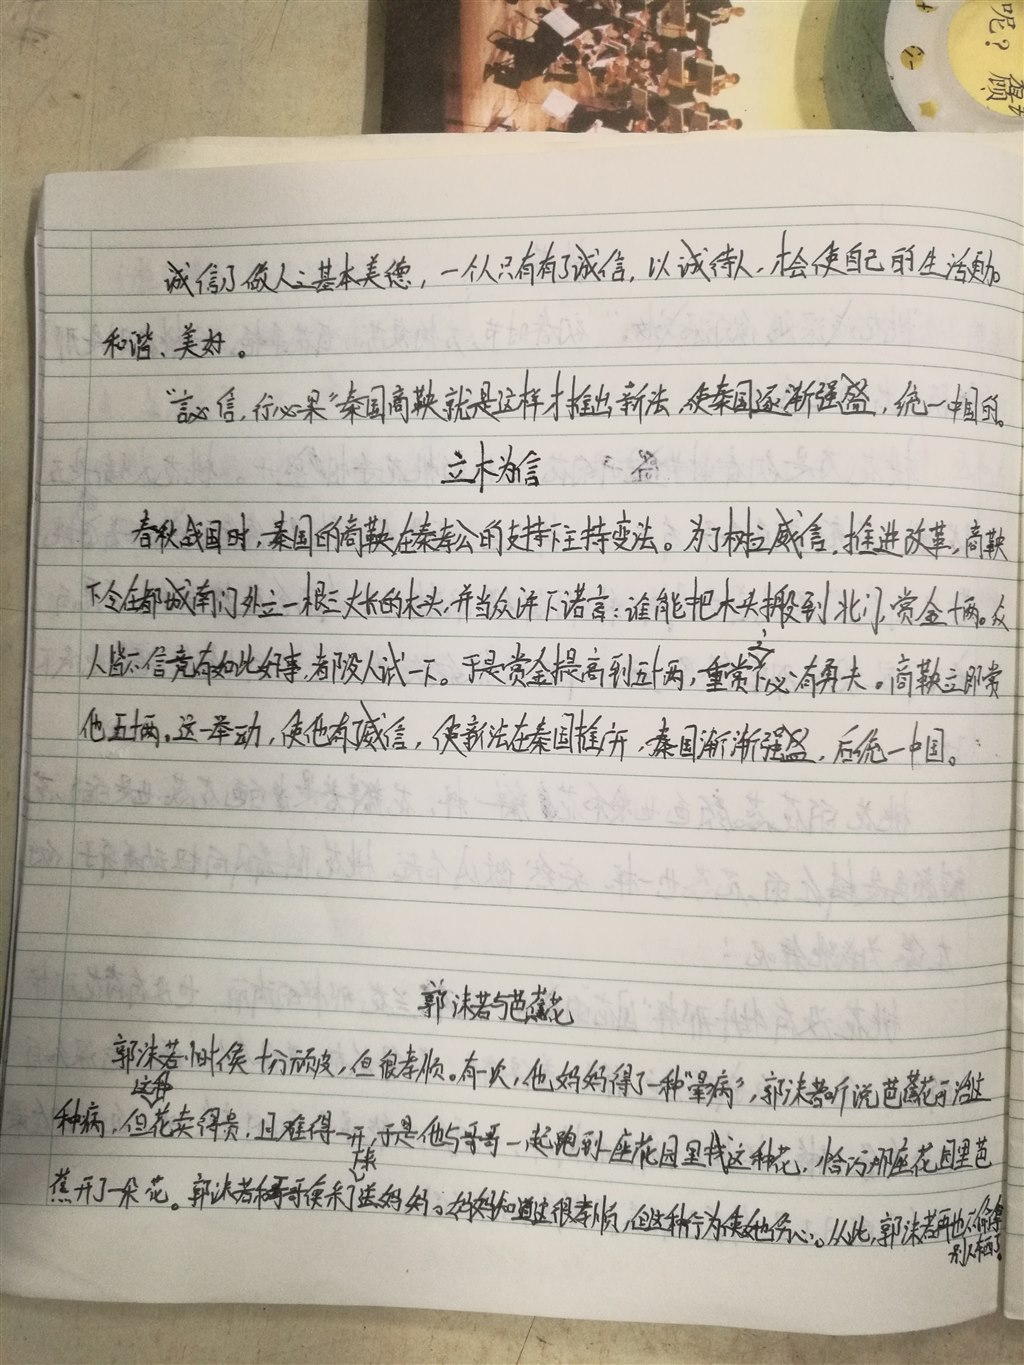 呢？
顾
诚信乃做人之基本美德，一个人只有有了诚信，以诚待人，才会使自己的生活更加
和谐、美好。
“言必信，行必果”秦国商鞅就是这样才推出新法，使秦国逐渐强盛，统一中国的。
立木为信
春秋战国时，秦国的商鞅在秦孝公的支持下主持变法。为了树立威信，推进改革，商鞅
下令在都城南门外立一根三丈长的木头，并当众许下诺言：谁能把木头搬到北门，赏金十两。众
人皆不信竟有如此好事，都没人试一下。于是赏金提高到五十两，重赏之下必有勇夫。商鞅立即赏
他五十两。这一举动，使他有了威信，使新法在秦国推广开，秦国渐渐强盛，后统一中国。
郭沫若与芭蕉花
郭沫若小时候十分顽皮，但很孝顺。有一次，他妈妈得了一种“晕病”，郭沫若听说芭蕉花可治这
种病，但这种花卖得贵，且难得一开，于是他与哥哥一起跑到一座花园里找这种花，恰巧那座花园里芭
蕉开了一朵花。郭沫若和哥哥便采了下来送妈妈。妈妈知道这很孝顺，但这种行为使她伤心。从此，郭沫若再也不偷拿
别人东西了。